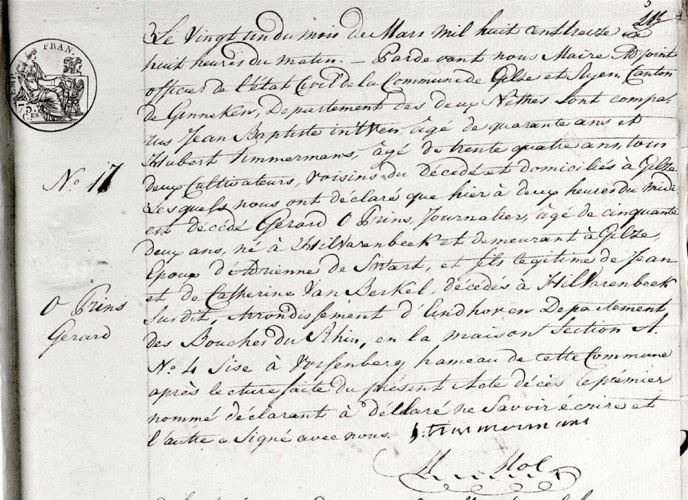 Le Vingt un du mois de Mars mil huit cent treize
huit heures du matin. – Pardevant nous Maire Adjoint
officier de l'état Civil de la Commune de Gilze et Ryen, Canton
de Ginneken, Departement des deux Néthes sont compa-
rus Jean Baptiste âgé de quarante ans et
Hubert Timmermans, âgé de trente quatre ans, tous
deux Cultivateurs, Voisins du décédé et domiciliés à Gilze
Lesquels nous ont déclaré que hier à deux heures du midi
est décédé Gerard O Prins, Journalier, âgé de cinquante
deux ans, né à Hilvarenbeek et demeurant à Gilze,
Epoux d'Adrienne de Swart, et fils legitime de Jean
et de Catherine Van Berkel, décédés à Hilvarenbeek
Susdit, Arrondissement d'Eindhoven Departement
des Bouches du Rhin, en la maison Section A.
No. 4 Sise à hameau de cette Commune
après lecture faite du présent Acte décès le prémier
nommé déclarant à déclaré ne Savoir écrire et
l'autre a Signé avec nous. Timmermans
H Hol
No. 17
O Prins
Gerard
FRAN.
75